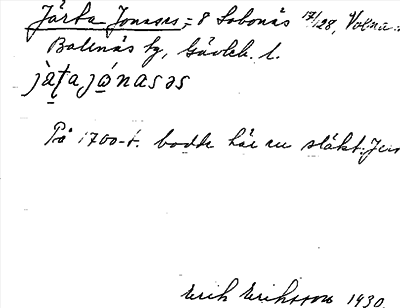 Järta Jonases, = 8 Sabonäs 17/128,
Ballnäs by, Gävleb. l.
jä̀ṭa jǫ́nasəs
På 1700-t. bodde här en släkt. Jon
Erik Eriksson 1930.